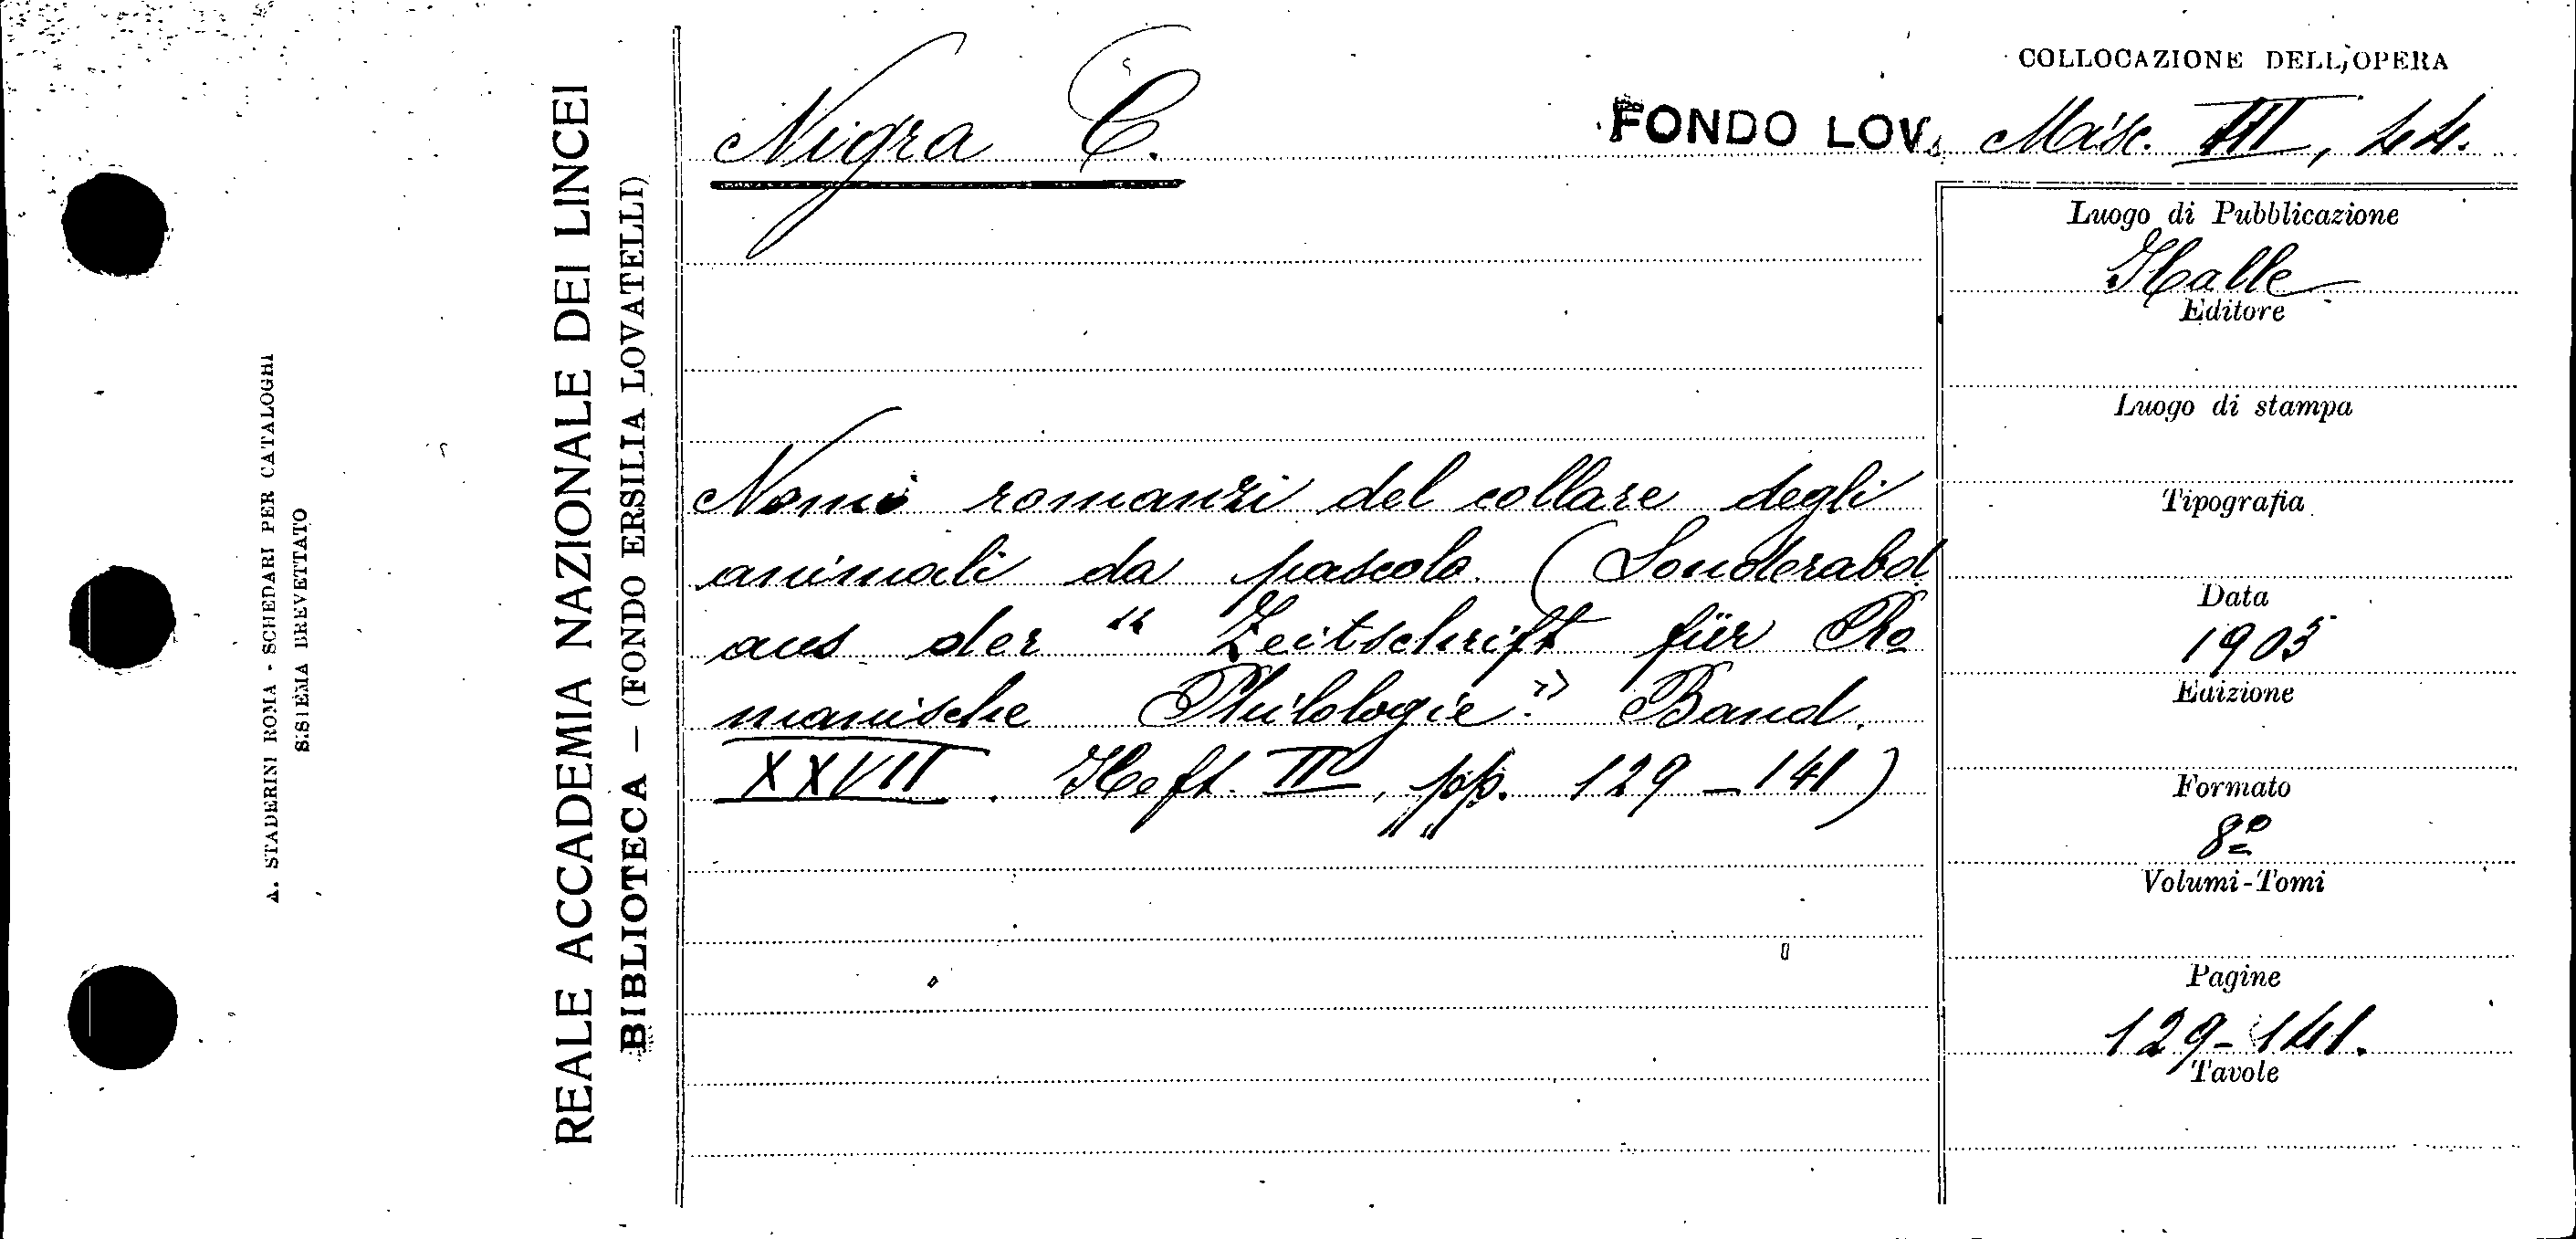 COLLOCAZIONE DELL'OPERA
Nigra C.
FONDO LOV. Misc. III, 44.
Luogo di Pubblicazione
Halle
Editore
Luogo di stampa
Nomi romanzi del collare degli
Tipografia
animali da pascolo. (Sonderabd
Data
aus der "Zeitschrift für Ro
1903
manische Philologie." Band.
Edizione
XXVII. Heft. II, pp. 129-141)
Formato
8º
Volumi-Tomi
Pagine
129-141.
Tavole
REALE ACCADEMIA NAZIONALE DEI LINCEI
BIBLIOTECA — (FONDO ERSILIA LOVATELLI)
A. STADERINI ROMA - SCHEDARI PER CATALOGHI
SISTEMA BREVETTATO